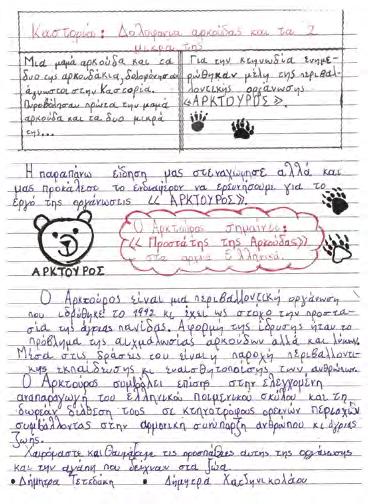 Καστοριά: Δολοφονία αρκούδας και τα 2
μικρά της
Μια μαμά αρκούδα και τα
δυο της αρκουδάκια, δολοφόνησαν
άγνωστοι στην Καστοριά.
Πυροβόλησαν πρώτα την μαμά
αρκούδα και τα δυο μικρά
της...
Για την κτηνωδία ενημε-
ρώθηκαν μέλη της περιβαλ-
λοντικής οργάνωσης
«ΑΡΚΤΟΥΡΟΣ».
Η παραπάνω είδηση μας στεναχώρησε αλλά και
μας προκάλεσε το ενδιαφέρον να ερευνήσουμε για το
έργο της οργάνωσης «ΑΡΚΤΟΥΡΟΣ».
Ο Αρκτούρος σημαίνει:
«Προστάτης της Αρκούδας»
στα αρχαία Ελληνικά.
ΑΡΚΤΟΥΡΟΣ
Ο Αρκτούρος είναι μια περιβαλλοντική οργάνωση
που ιδρύθηκε το 1992 κι έχει ως στόχο την προστα-
σία της άγριας πανίδας. Αφορμή της ίδρυσης ήταν το
πρόβλημα της αιχμαλωσίας αρκούδων αλλά και λύκων.
Μέσα στις δράσεις του είναι η παροχή περιβαλλοντι-
κής εκπαίδευσης κι ευαισθητοποίησης των ανθρώπων.
Ο Αρκτούρος συμβάλει επίσης στην ελεγχόμενη
αναπαραγωγή του ελληνικού ποιμενικού σκύλου και τη
δωρεάν διάθεση τους σε κτηνοτρόφους ορεινών περιοχών
συμβάλλοντας στην αρμονική συνύπαρξη ανθρώπου κι άγριας
ζωής.
Χαιρόμαστε και θαυμάζουμε τις προσπάθειες αυτής της οργάνωσης
και την αγάπη που δείχνουν στα ζώα.
• Δήμητρα Τετεδάκη • Δήμητρα Χατζηνικολάου